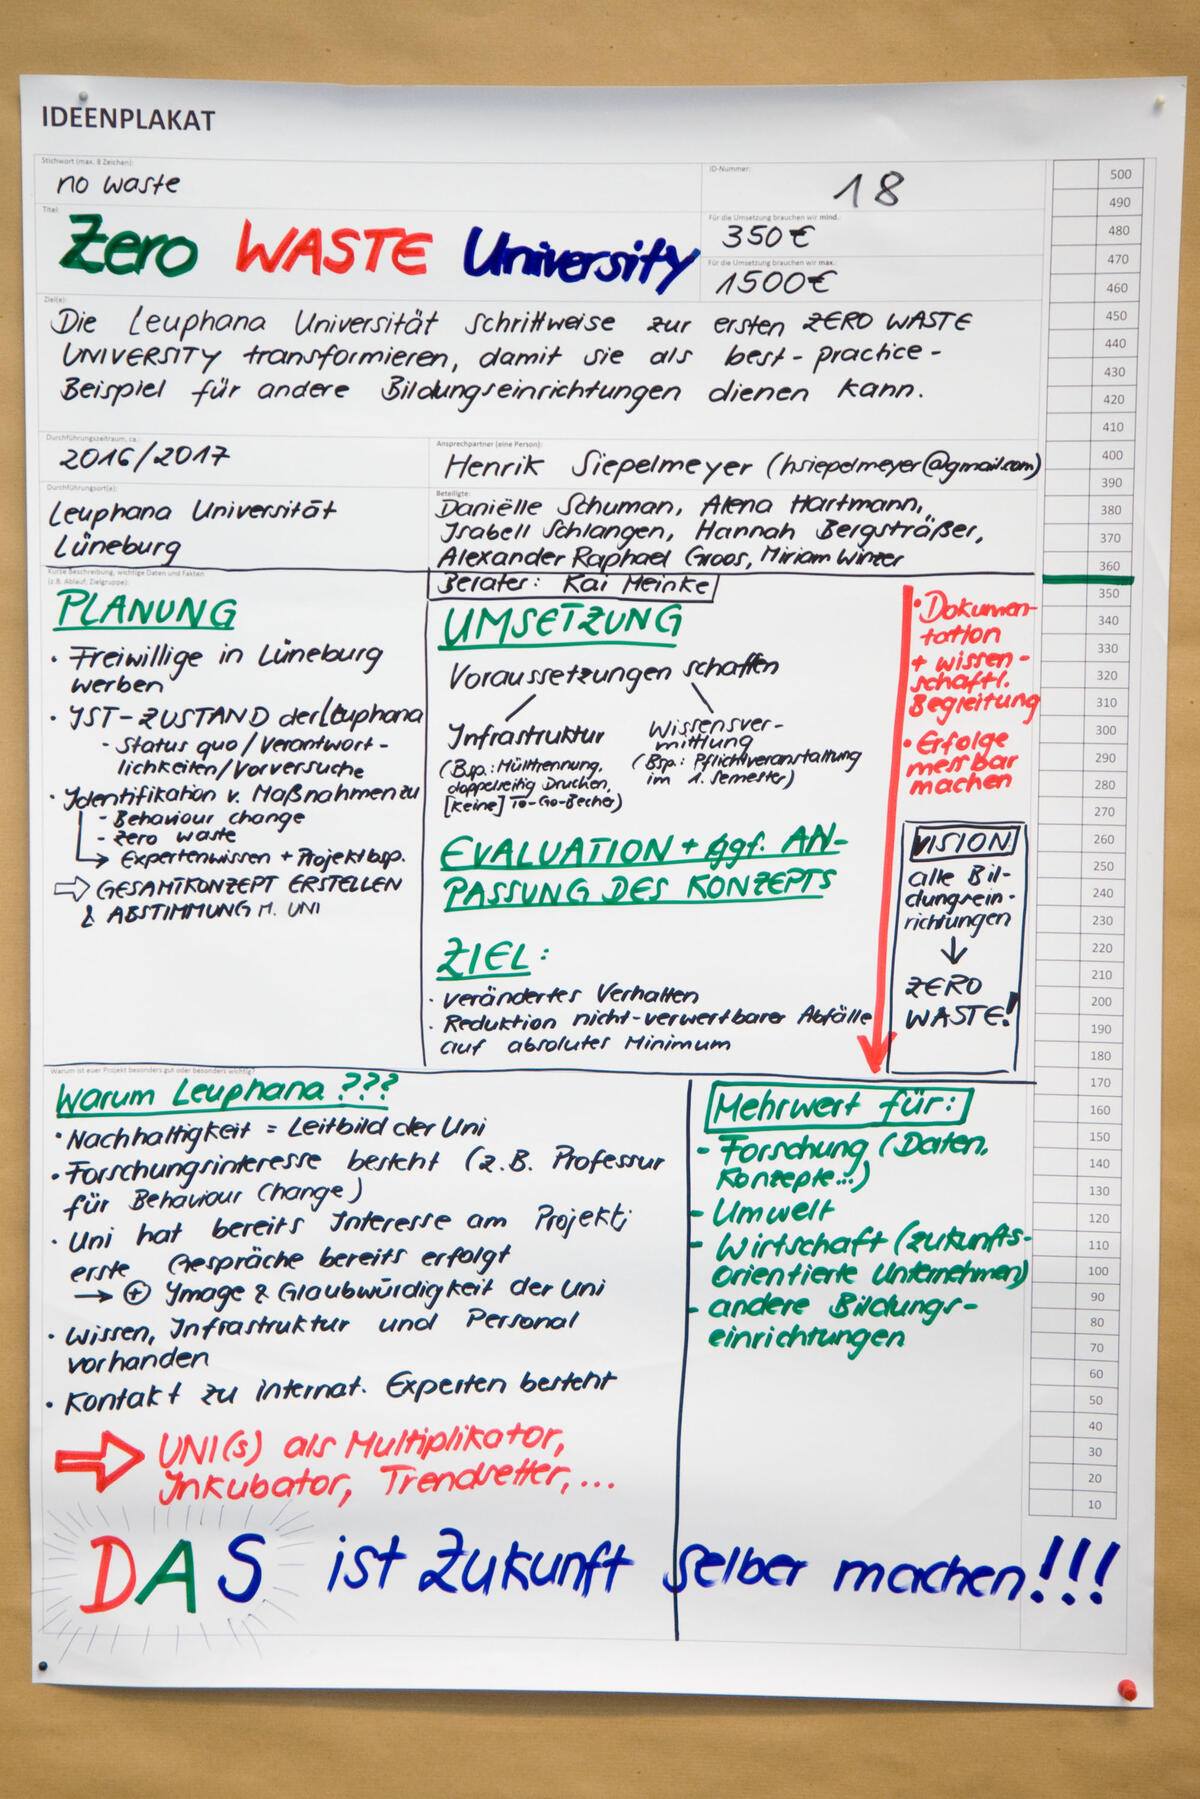 IDEENPLAKAT
Stichwort (max. 8 Zeichen):
no waste
ID-Nummer:
18
Titel:
Zero WASTE University
Für die Umsetzung brauchen wir mind.:
350€
Für die Umsetzung brauchen wir max.:
1500€
Ziel(e):
Die Leuphana Universität schrittweise zur ersten ZERO WASTE
UNIVERSITY transformieren, damit sie als best-practice-
Beispiel für andere Bildungseinrichtungen dienen kann.
Durchführungszeitraum, ca.:
2016/2017
Ansprechpartner (eine Person):
Henrik Siepelmeyer (hsiepelmeyer@gmail.com)
Durchführungsort(e):
Leuphana Universität
Lüneburg
Beteiligte:
Daniëlle Schuman, Alena Hartmann,
Isabell Schlangen, Hannah Bergsträßer,
Alexander Raphael Groos, Miriam Winzer
Berater: Kai Meinke
Kurze Beschreibung, wichtige Daten und Fakten
(z.B. Ablauf, Zielgruppe):
PLANUNG
• Freiwillige in Lüneburg
werben
• IST-ZUSTAND der Leuphana
- Status quo/Verantwort-
lichkeiten/Vorversuche
• Identifikation v. Maßnahmen zu
- Behaviour change
- Zero waste
→ Expertenwissen + Projektbsp.
⇒ GESAMTKONZEPT ERSTELLEN
& ABSTIMMUNG M. UNI
UMSETZUNG
Voraussetzungen schaffen
Infrastruktur
(Bsp.: Mülltrennung,
doppelseitig Drucken,
[keine] To-Go-Becher)
Wissensver-
mittlung
(Bsp.: Pflichtveranstaltung
im 1. Semester)
EVALUATION + ggf. AN-
PASSUNG DES KONZEPTS
ZIEL:
• verändertes Verhalten
• Reduktion nicht-verwertbarer Abfälle
auf absolutes Minimum
• Dokumen-
tation
+ wissen-
schaftl.
Begleitung
• Erfolge
messbar
machen
VISION
alle Bil-
dungsein-
richtungen
↓
ZERO
WASTE!
Warum ist euer Projekt besonders gut oder besonders wichtig?
Warum Leuphana ???
• Nachhaltigkeit = Leitbild der Uni
• Forschungsinteresse besteht (z.B. Professur
für Behaviour Change)
• Uni hat bereits Interesse am Projekt;
erste Gespräche bereits erfolgt
→ ⊕ Image & Glaubwürdigkeit der Uni
• Wissen, Infrastruktur und Personal
vorhanden
• Kontakt zu internat. Experten besteht
⇒ UNI(s) als Multiplikator,
Inkubator, Trendsetter,...
Mehrwert für:
- Forschung (Daten,
Konzepte...)
- Umwelt
- Wirtschaft (zukunfts-
orientierte Unternehmen)
- andere Bildungs-
einrichtungen
DAS ist Zukunft selber machen!!!
500
490
480
470
460
450
440
430
420
410
400
390
380
370
360
350
340
330
320
310
300
290
280
270
260
250
240
230
220
210
200
190
180
170
160
150
140
130
120
110
100
90
80
70
60
50
40
30
20
10